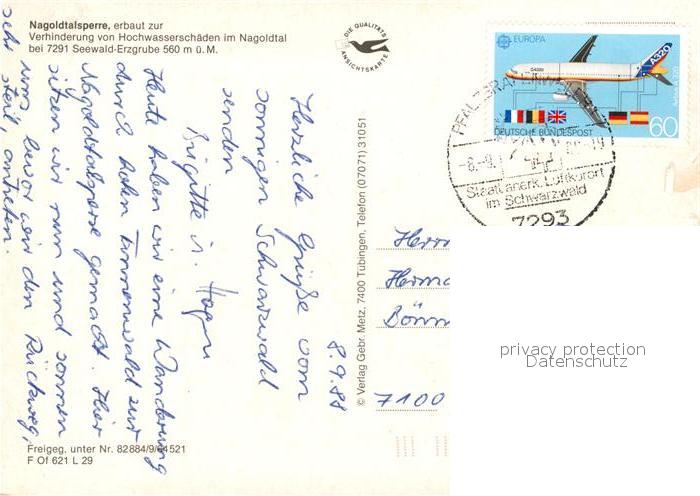 Nagoldtalsperre, erbaut zur
Verhinderung von Hochwasserschäden im Nagoldtal
bei 7291 Seewald-Erzgrube 560 m ü. M.
DIE QUALITÄTS
ANSICHTSKARTE
EUROPA
A320
Airbus A320
DEUTSCHE BUNDESPOST
60
PFALZGRAFENWEILER
-8.-9.
Staatl. anerk. Luftkurort
im Schwarzwald
7293
8.9.88
Herzliche Grüße vom
sonnigen Schwarzwald
senden
Brigitte u. Hagen
Heute haben wir eine Wanderung
durch hohen Tannenwald zur
Nagoldtalsperre gemacht. Hier
sitzen wir nun und sonnen
uns bevor wir den Rückweg,
sehr steil, antreten.
© Verlag Gebr. Metz, 7400 Tübingen, Telefon (07071) 31051
Herrn
Herma
Bönn
7100
privacy protection
Datenschutz
Freigeg. unter Nr. 82884/9/64521
F Of 621 L 29